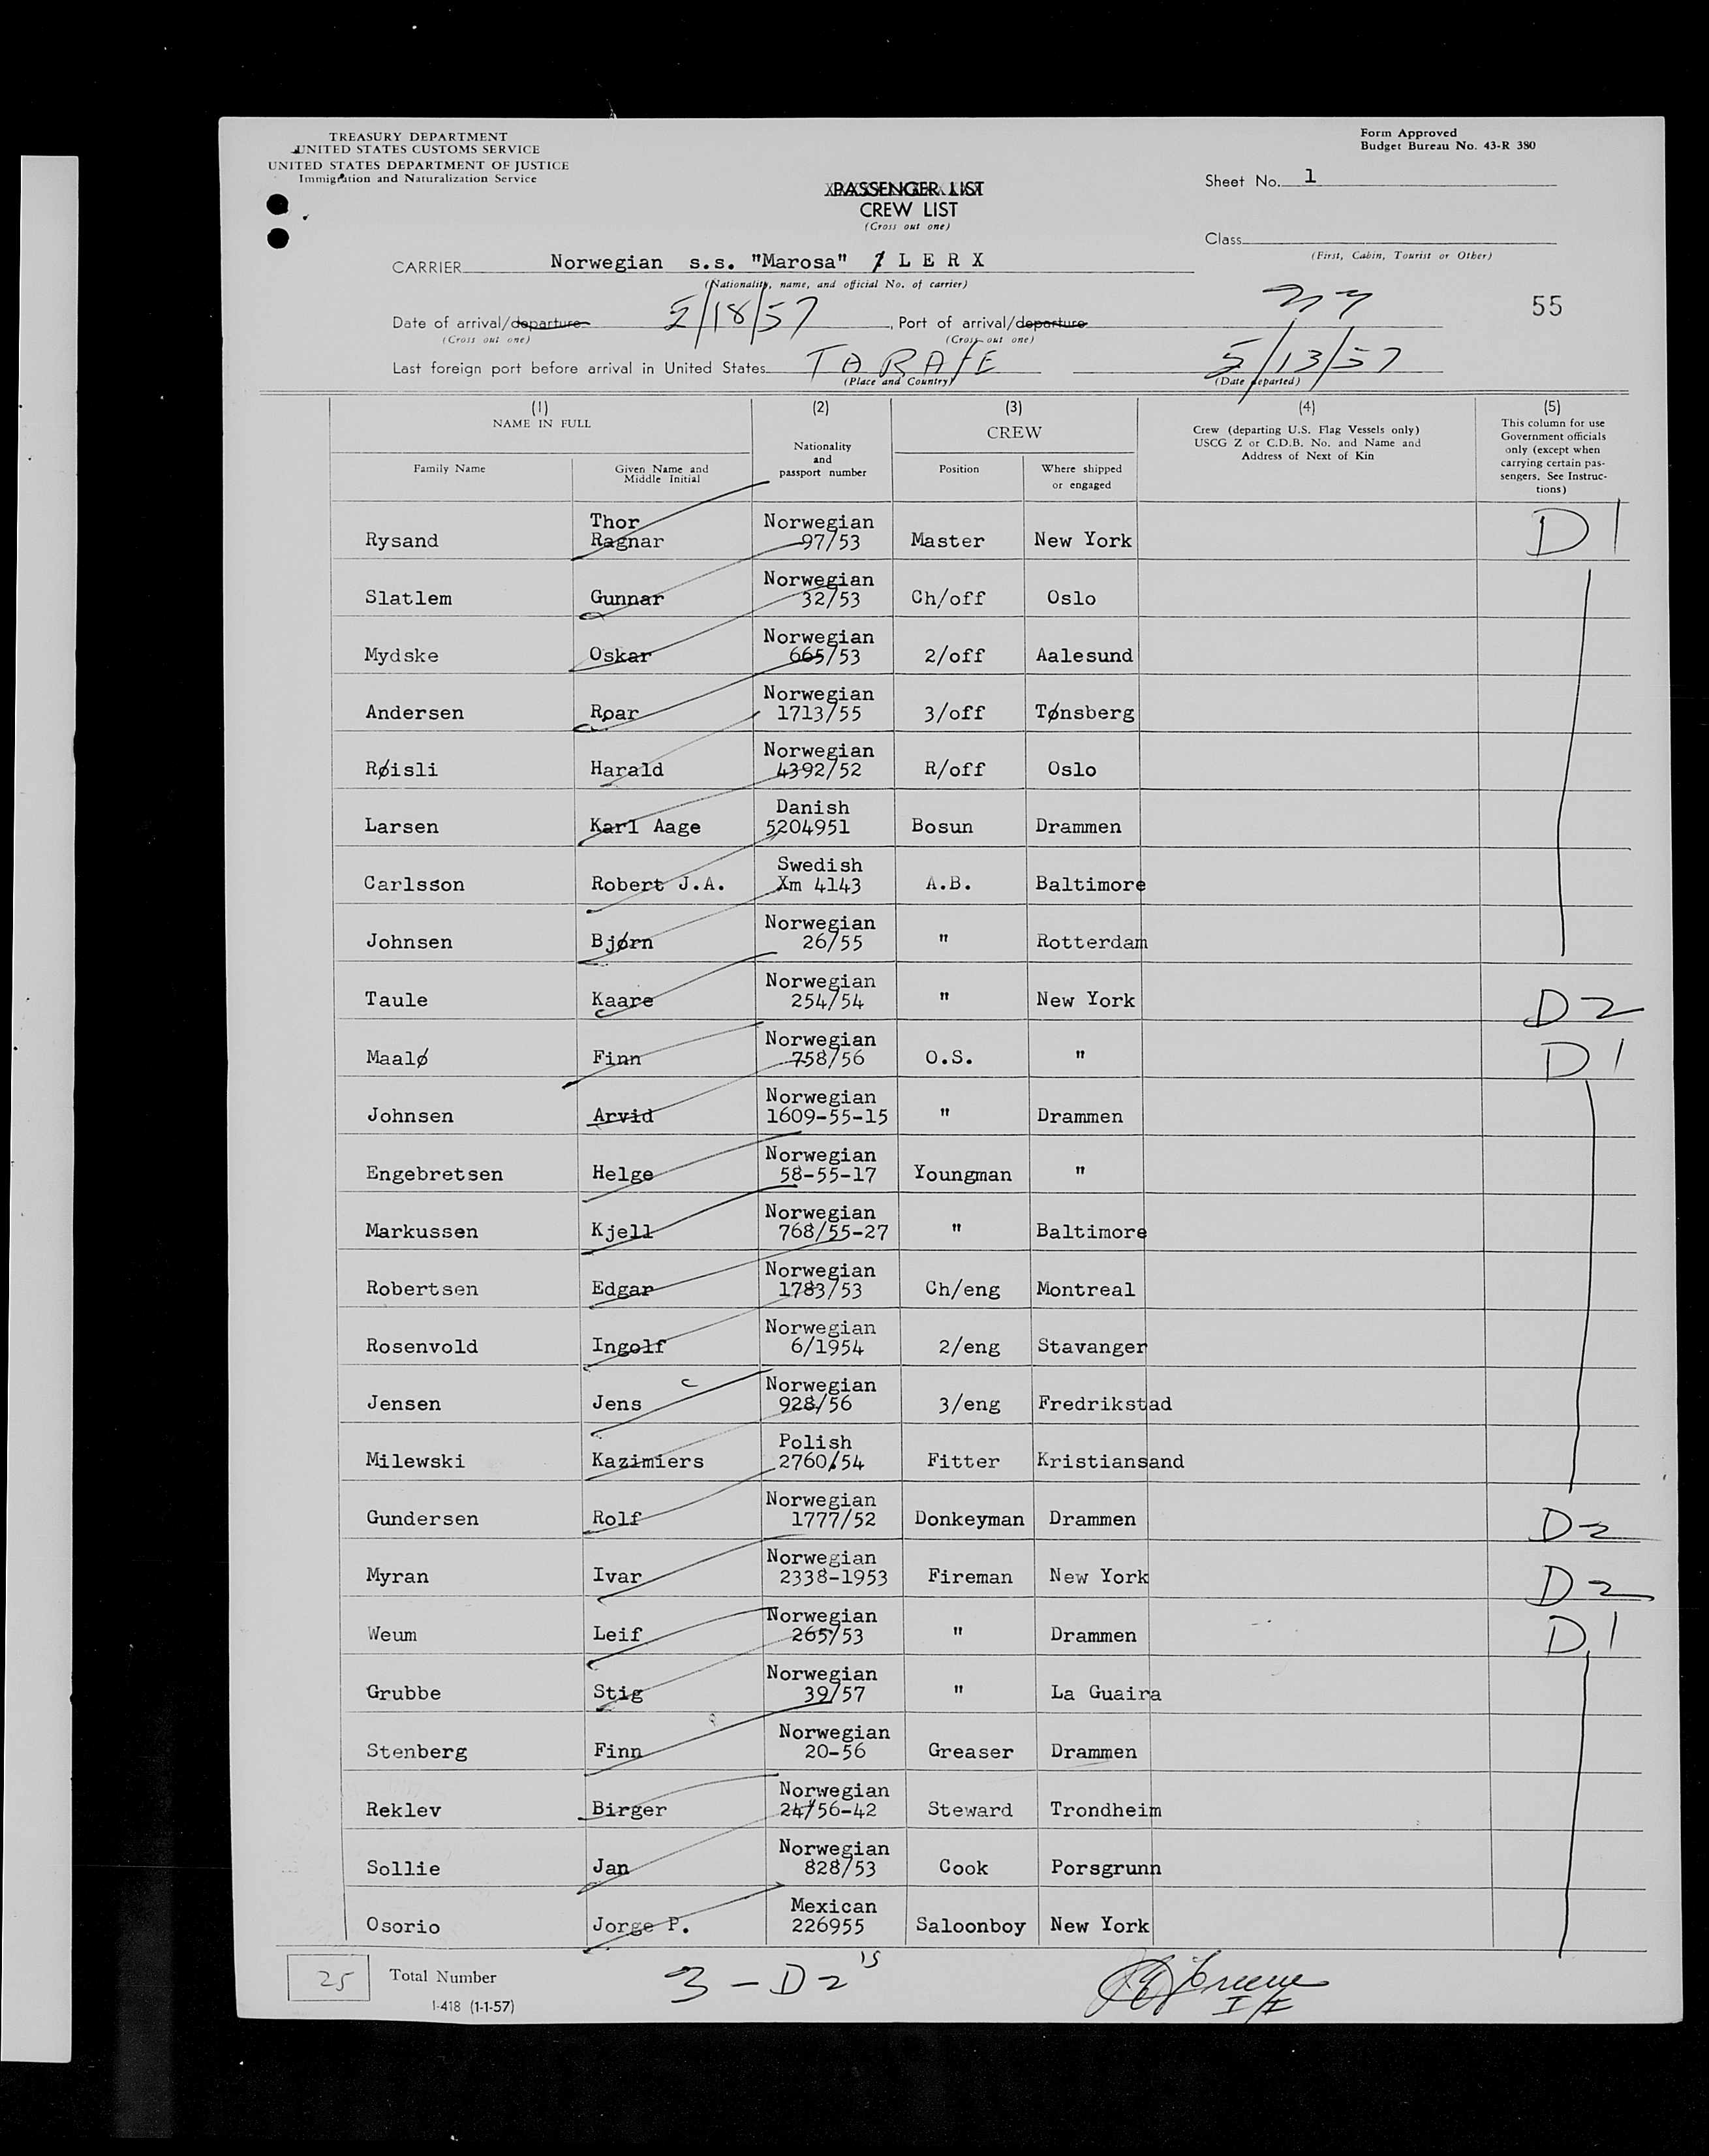 TREASURY DEPARTMENT
UNITED STATES CUSTOMS SERVICE
UNITED STATES DEPARTMENT OF JUSTICE
Immigration and Naturalization Service
Form Approved
Budget Bureau No. 43-R 380
Sheet No. 1
PASSENGER LIST
CREW LIST
(Cross out one)
Class
(First, Cabin, Tourist or Other)
CARRIER Norwegian s.s. "Marosa" / L E R X
(Nationality, name, and official No. of carrier)
55
Date of arrival/departure 5/18/57, Port of arrival/departure NY
(Cross out one) (Cross out one)
Last foreign port before arrival in United States TARAFE 5/13/57
(Place and Country) (Date departed)
(1) (2) (3) (4) (5)
NAME IN FULL
Family Name
Given Name and
Middle Initial
Nationality
and
passport number
CREW
Position
Where shipped
or engaged
Crew (departing U.S. Flag Vessels only)
USCG Z or C.D.B. No. and Name and
Address of Next of Kin
This column for use
Government officials
only (except when
carrying certain pas-
sengers. See Instruc-
tions)
Thor Norwegian
Rysand Ragnar 97/53 Master New York D1
Norwegian
Slatlem Gunnar 32/53 Ch/off Oslo
Norwegian
Mydske Oskar 665/53 2/off Aalesund
Norwegian
Andersen Roar 1713/55 3/off Tønsberg
Norwegian
Røisli Harald 4392/52 R/off Oslo
Danish
Larsen Karl Aage 5204951 Bosun Drammen
Swedish
Carlsson Robert J.A. Xm 4143 A.B. Baltimore
Norwegian
Johnsen Bjørn 26/55 " Rotterdam
Norwegian
Taule Kaare 254/54 " New York D2
Norwegian
Maalø Finn 758/56 O.S. " D1
Norwegian
Johnsen Arvid 1609-55-15 " Drammen
Norwegian
Engebretsen Helge 58-55-17 Youngman "
Norwegian
Markussen Kjell 768/55-27 " Baltimore
Norwegian
Robertsen Edgar 1783/53 Ch/eng Montreal
Norwegian
Rosenvold Ingolf 6/1954 2/eng Stavanger
Norwegian
Jensen Jens 928/56 3/eng Fredrikstad
Polish
Milewski Kazimiers 2760/54 Fitter Kristiansand
Norwegian
Gundersen Rolf 1777/52 Donkeyman Drammen D2
Norwegian
Myran Ivar 2338-1953 Fireman New York D2
Norwegian
Weum Leif 265/53 " Drammen D1
Norwegian
Grubbe Stig 39/57 " La Guaira
Norwegian
Stenberg Finn 20-56 Greaser Drammen
Norwegian
Reklev Birger 24/56-42 Steward Trondheim
Norwegian
Sollie Jan 828/53 Cook Porsgrunn
Mexican
Osorio Jorge P. 226955 Saloonboy New York
25 Total Number 3 - D2's
I-418 (1-1-57)